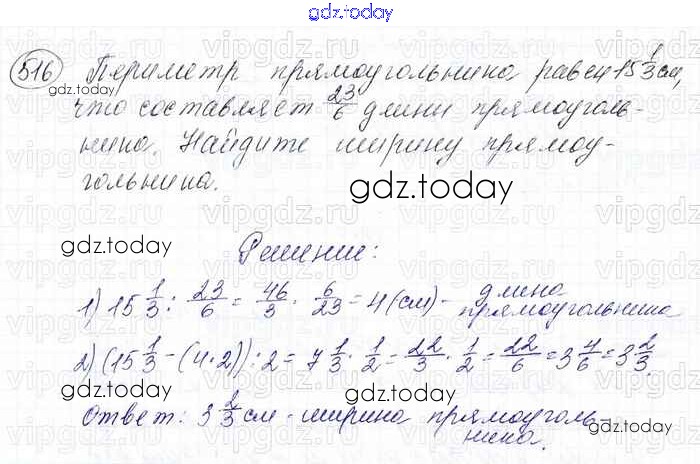 gdz.today
516 Периметр прямоугольника равен 15 1/3 см,
что составляет 23/6 длины прямоуголь-
ника. Найдите ширину прямоу-
гольника.
gdz.today
gdz.today
gdz.today
Решение:
1) 15 1/3 : 23/6 = 46/3 · 6/23 = 4 (см) - длина прямоугольника
gdz.today
2) (15 1/3 - (4·2)) : 2 = 7 1/3 · 1/2 = 22/3 · 1/2 = 22/6 = 3 4/6 = 3 2/3
gdz.today
gdz.today
Ответ: 3 2/3 см - ширина прямоуголь-
ника.
gdz.today